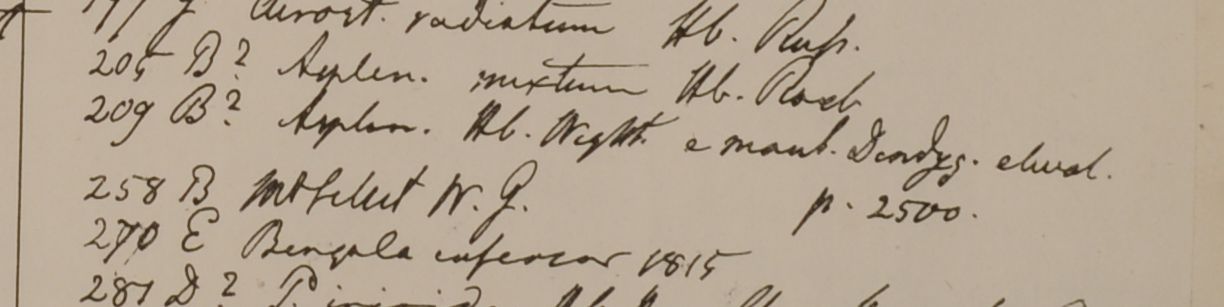 Acrost. radiatum Hb. Russ.
205 B? Asplen. mixtum Hb. Roxb
209 B? Asplen. Hb. Wight. e mont. Dindyg. elwat.
p. 2500.
258 B Mt Sillet W. G.
270 E Bengala inferior 1815
281 D?